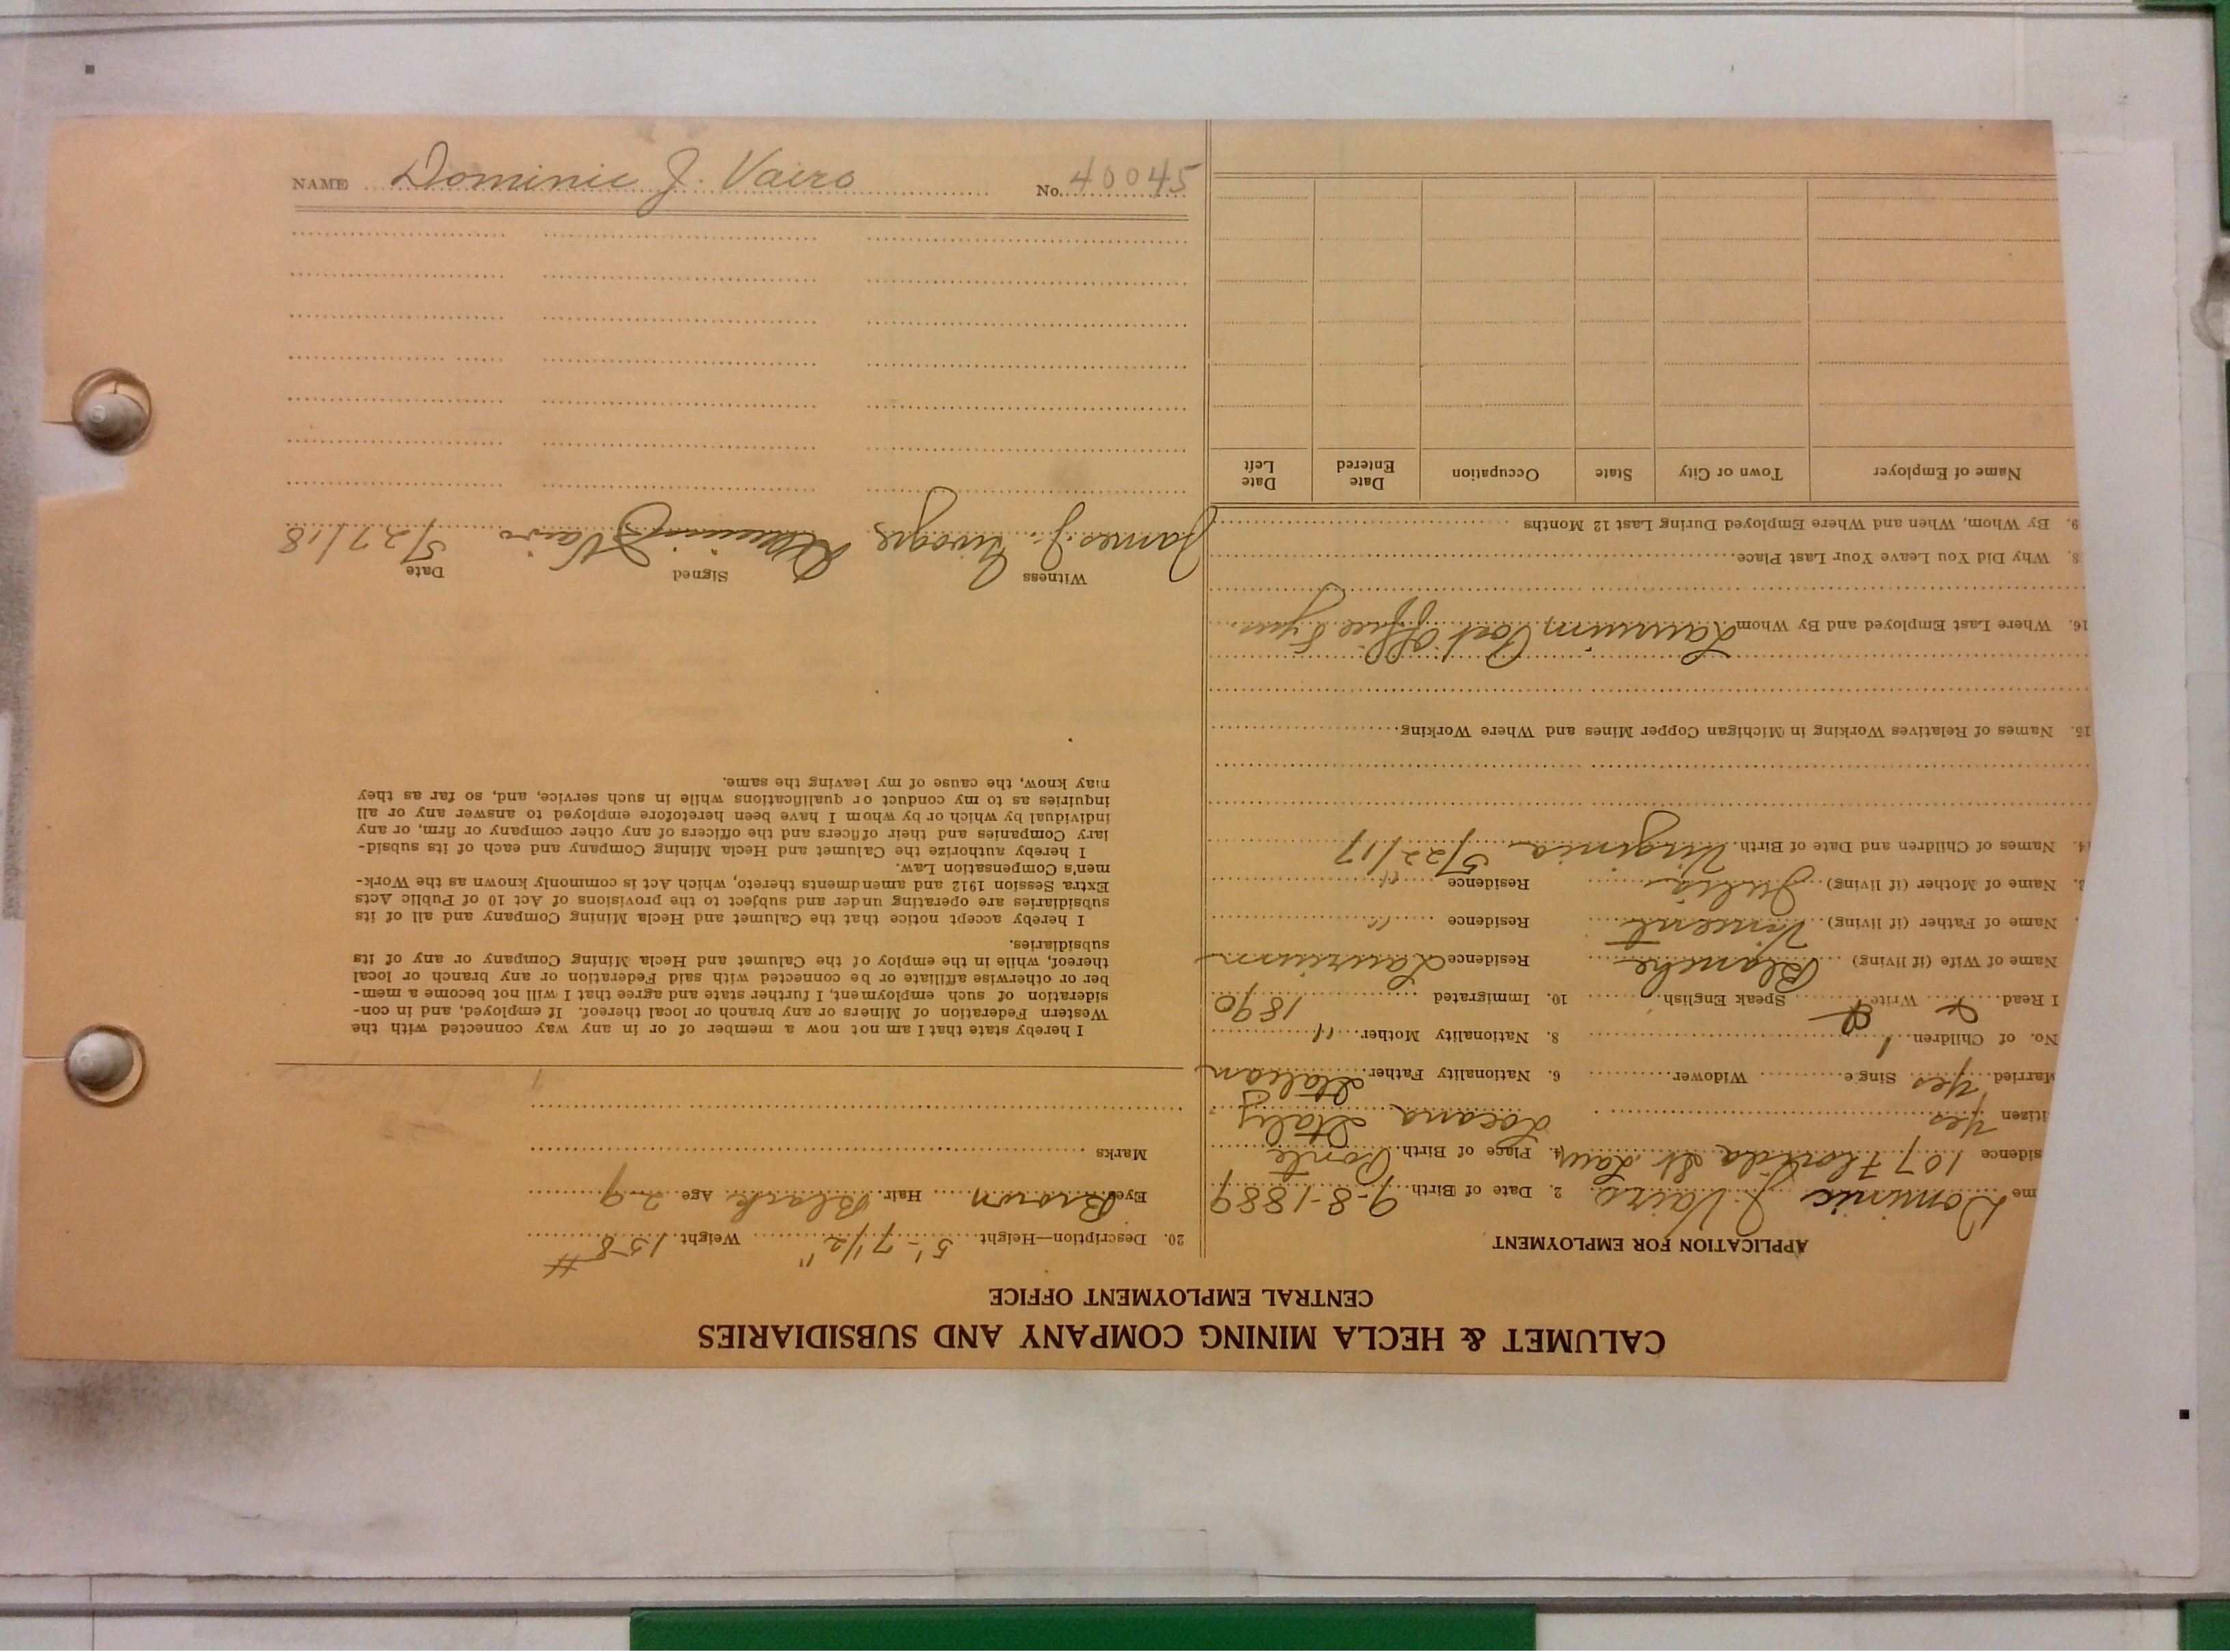 CALUMET & HECLA MINING COMPANY AND SUBSIDIARIES
CENTRAL EMPLOYMENT OFFICE
APPLICATION FOR EMPLOYMENT
me Dominic J. Vairo 2. Date of Birth 9-8-1889
sidence 107 Florida St. Laur. Place of Birth Ponte
itizen yes Locana Italy
Married yes Single Widower 6. Nationality Father Italian
No. of Children 1 8. Nationality Mother "
I Read Write Speak English 10. Immigrated 1890
Name of Wife (if living) Blanche Residence Laurium
Name of Father (if living) Vincent Residence "
3. Name of Mother (if living) Julia Residence "
14. Names of Children and Date of Birth Virginia 5/22/17
15. Names of Relatives Working in Michigan Copper Mines and Where Working
16. Where Last Employed and By Whom Laurium Post Office 8 yrs
8. Why Did You Leave Your Last Place
9. By Whom, When and Where Employed During Last 12 Months
Name of Employer Town or City State Occupation Date Entered Date Left
20. Description—Height 5'-7 1/2" Weight 158 #
Eyes Brown Hair Black Age 29
Marks
I hereby state that I am not now a member of or in any way connected with the
Western Federation of Miners or any branch or local thereof. If employed, and in con-
sideration of such employment, I further state and agree that I will not become a mem-
ber or otherwise affiliate or be connected with said Federation or any branch or local
thereof, while in the employ of the Calumet and Hecla Mining Company or any of its
subsidiaries.
I hereby accept notice that the Calumet and Hecla Mining Company and all of its
subsidiaries are operating under and subject to the provisions of Act 10 of Public Acts
Extra Session 1912 and amendments thereto, which Act is commonly known as the Work-
men's Compensation Law.
I hereby authorize the Calumet and Hecla Mining Company and each of its subsid-
iary Companies and their officers and the officers of any other company or firm, or any
individual by which or by whom I have been heretofore employed to answer any or all
inquiries as to my conduct or qualifications while in such service, and, so far as they
may know, the cause of my leaving the same.
Witness Signed Date
James J. Dominic J Vairo 5/27/18
NAME Dominic J. Vairo No. 40045